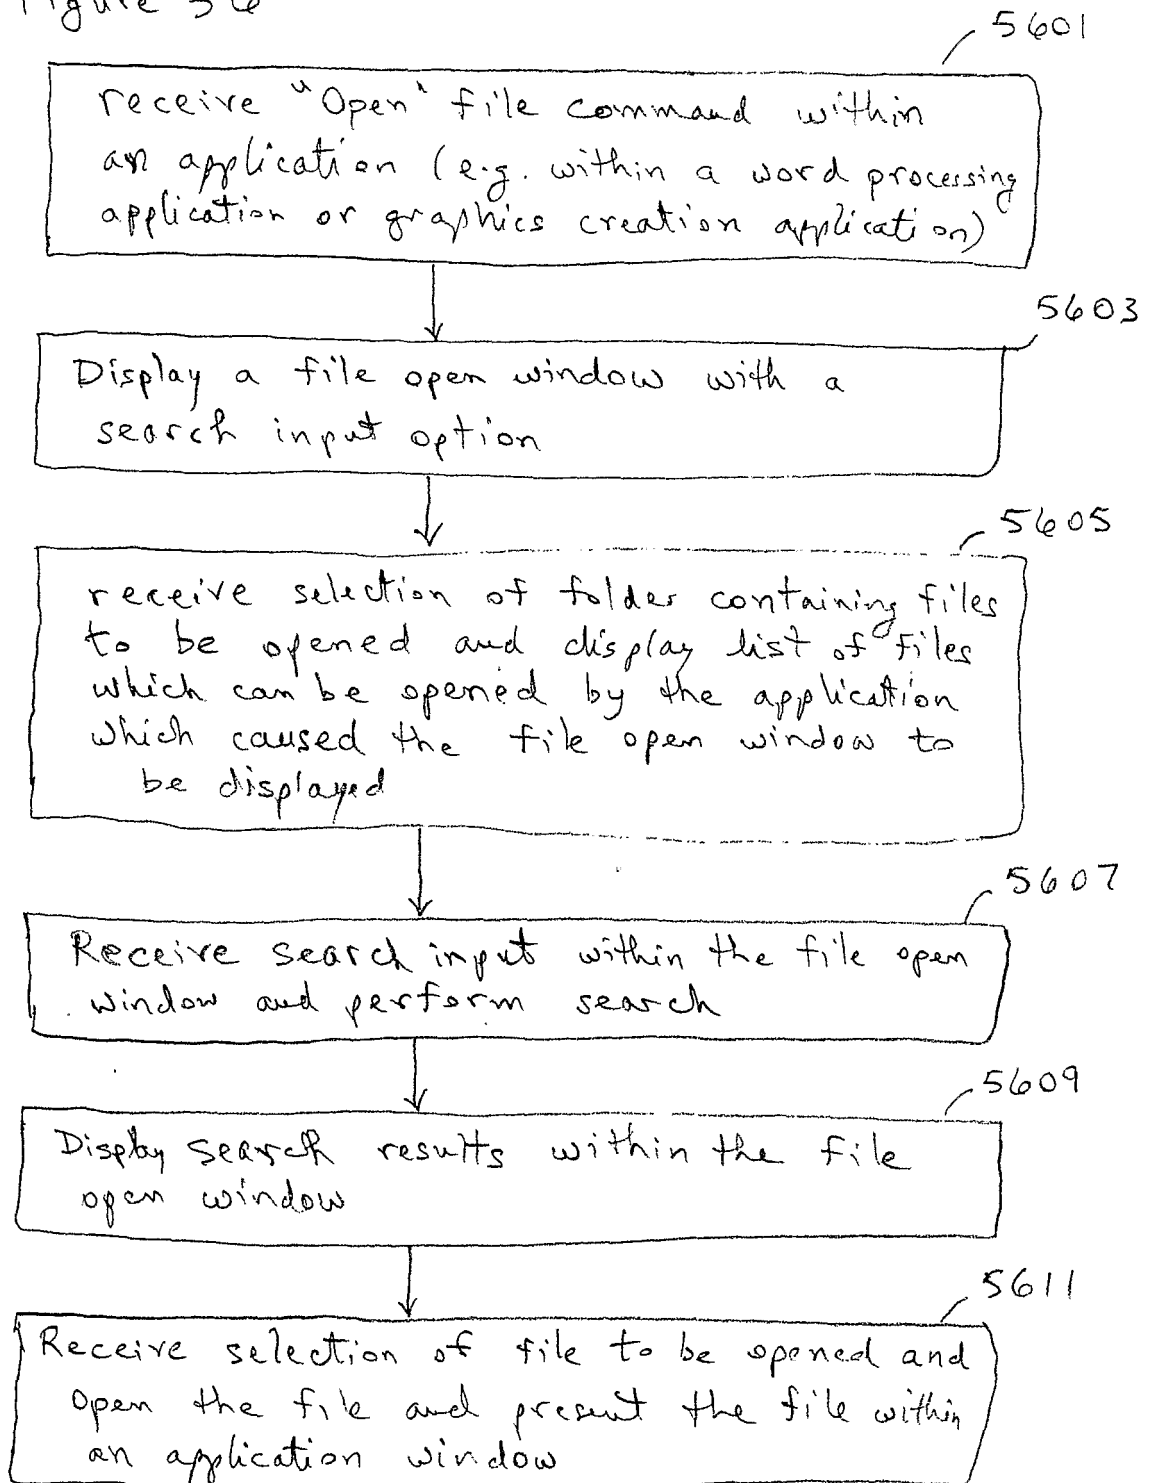 Figure 56
5601
receive "Open" file command within
an application (e.g. within a word processing
application or graphics creation application)
5603
Display a file open window with a
search input option
5605
receive selection of folder containing files
to be opened and display list of files
which can be opened by the application
which caused the file open window to
be displayed
5607
Receive search input within the file open
window and perform search
5609
Display search results within the file
open window
5611
Receive selection of file to be opened and
open the file and present the file within
an application window